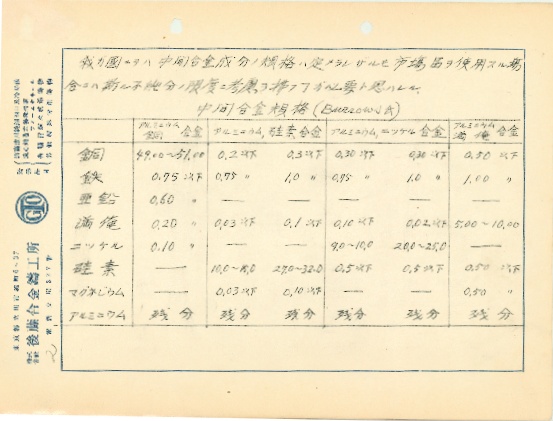 我ガ國ニテハ中間合金成分ノ規格ハ定メラレザルモ市場品ヲ使用スル場
合ニハ斯ル不純分ノ限度ニ考慮ヲ拂フ必要ト思ハレル
中間合金規格(Burrows氏)
アルミニウム 銅 合金 アルミニウム, 硅素合金 アルミニウム, ニッケル合金 アルミニウム 満俺 合金
銅 49.00~51.00 0.2以下 0.3以下 0.30以下 0.30以下 0.50以下
鉄 0.75〃 0.75〃 1.0〃 0.75〃 1.0〃 1.00〃
亜鉛 0.60〃 — — — — —
満俺 0.20〃 0.03以下 0.1以下 0.10以下 0.02以下 5.00~10.00
ニッケル 0.10〃 — — 9.0~10.0 20.0~25.0 —
硅素 — 10.0~15.0 27.0~32.0 0.5以下 0.5以下 0.50以下
マグネシウム — 0.03以下 0.10以下 — — 0.50〃
アルミニウム 残分 残分 残分 残分 残分 残分
株式會社 後藤合金鑄工所